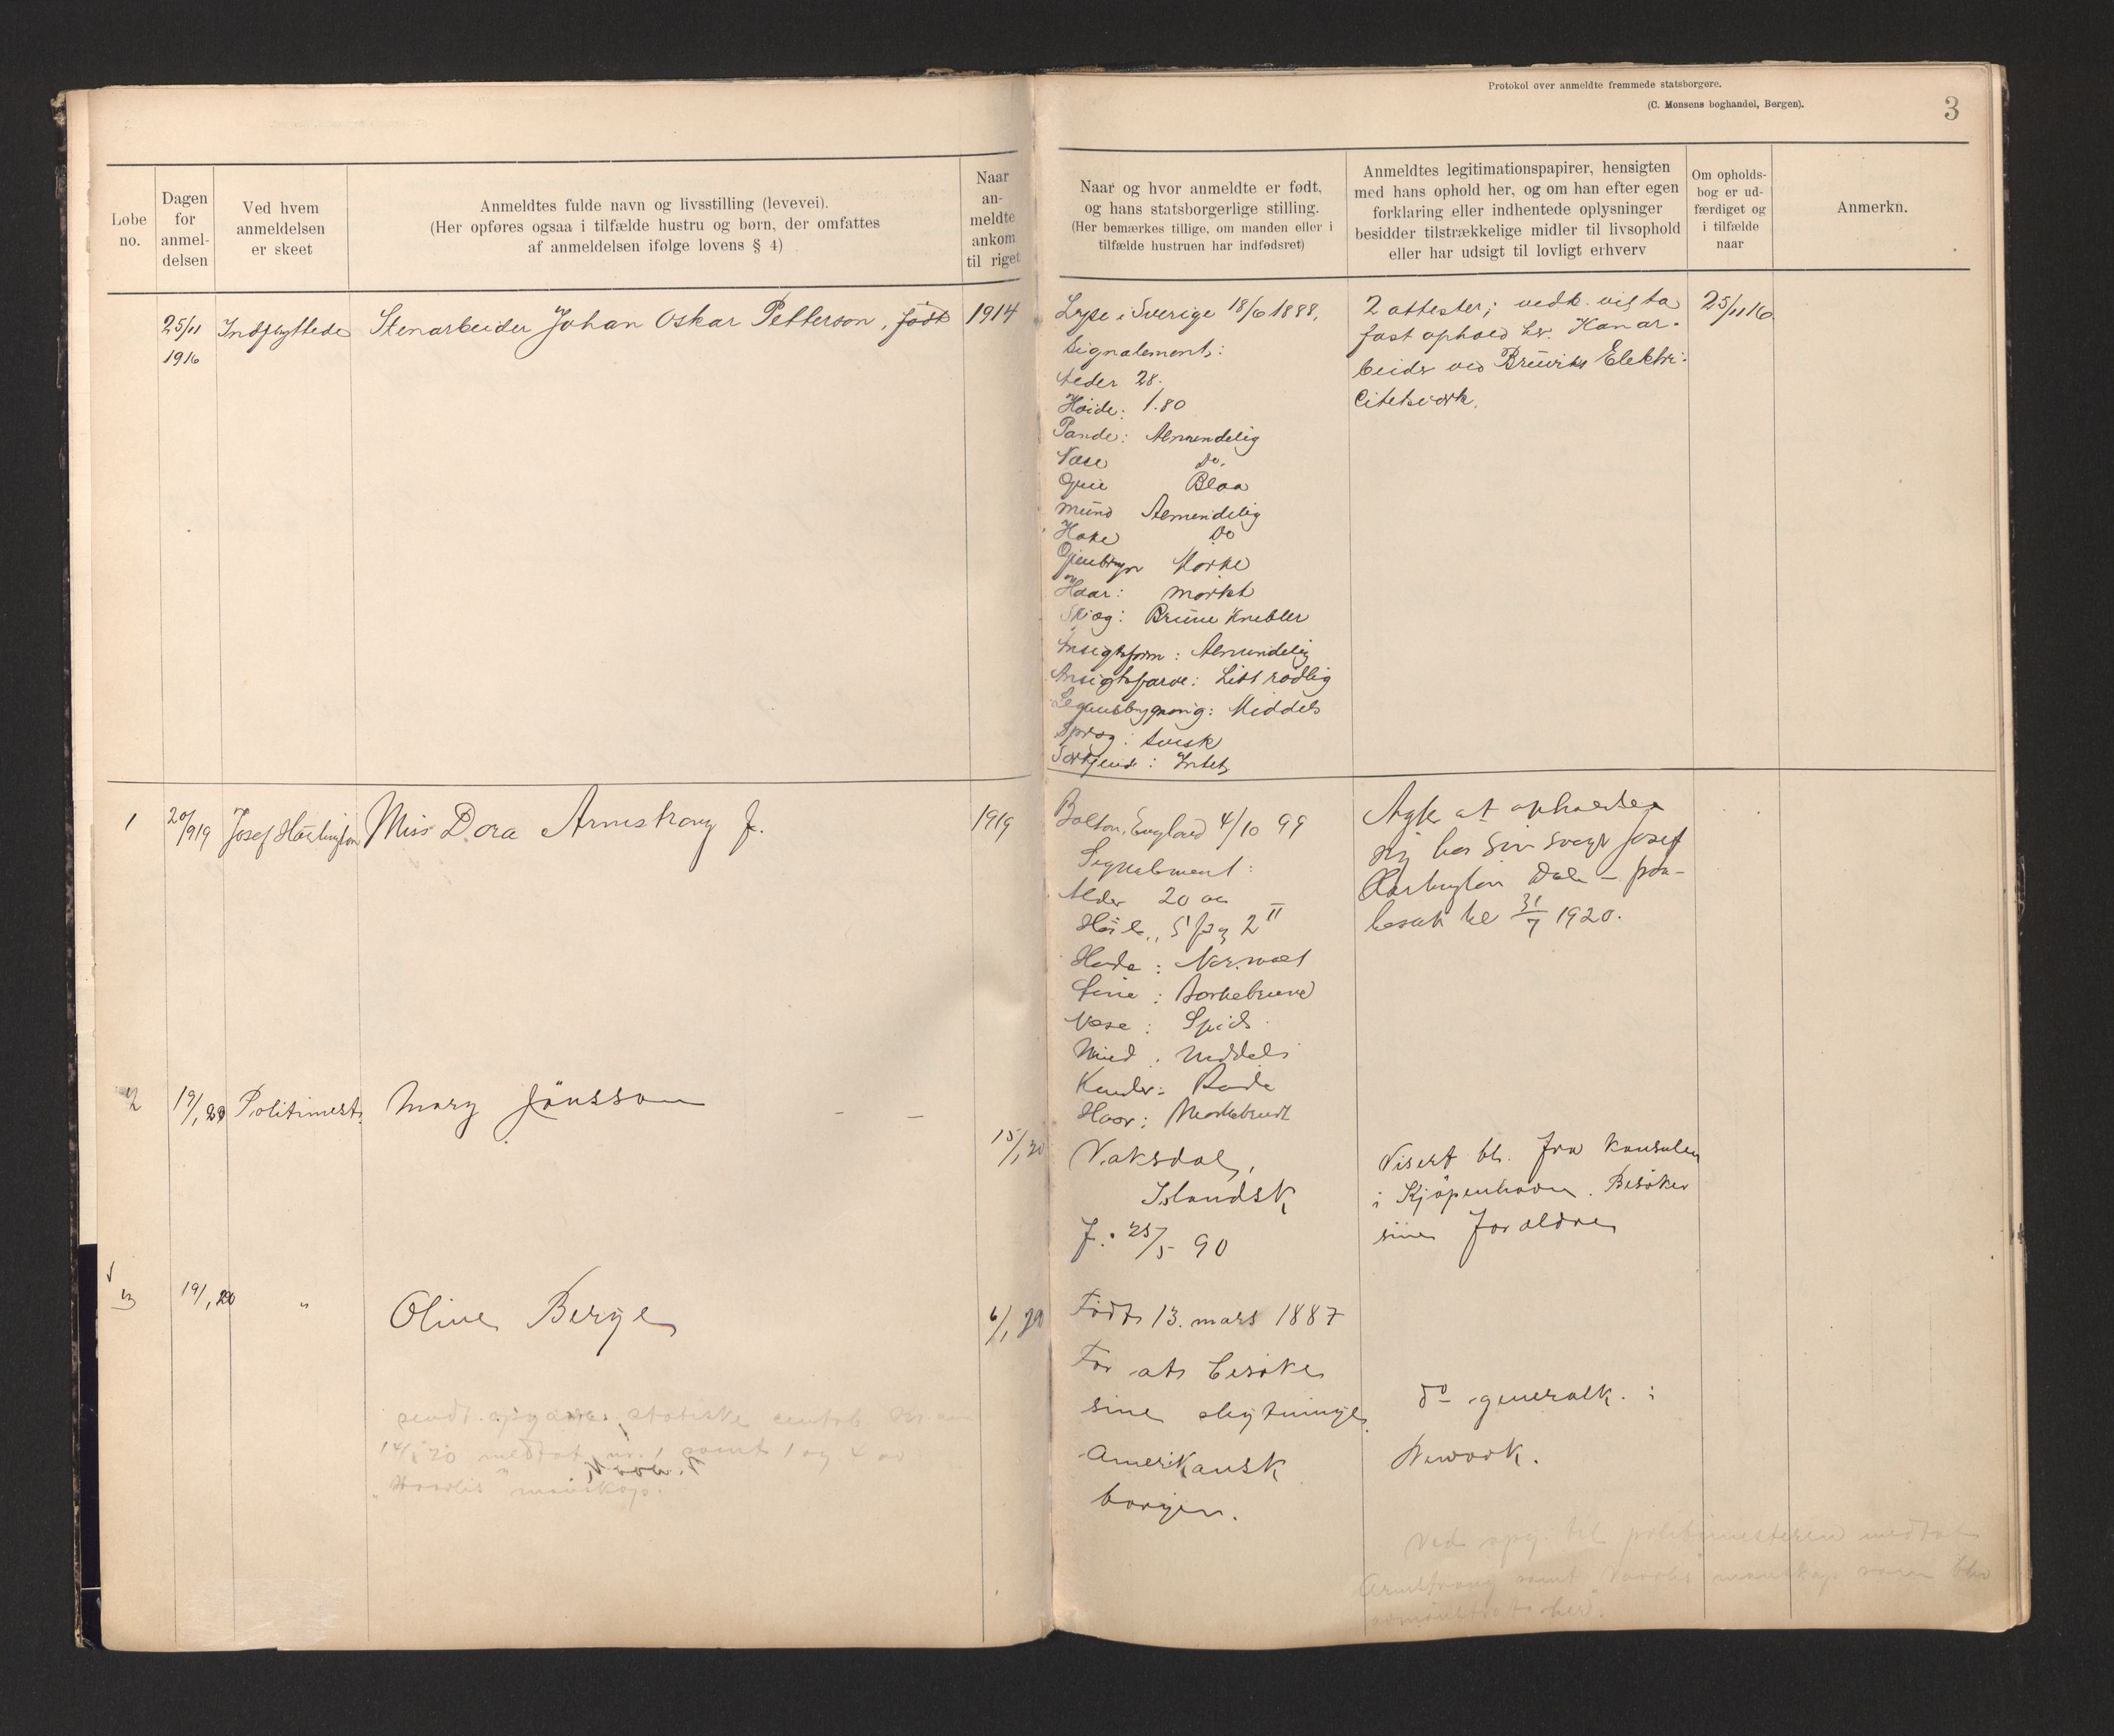 Protokol over anmeldte fremmede statsborgere.
(C. Monsens boghandel, Bergen).
3
Løbe no.
Dagen for anmel- delsen
Ved hvem anmeldelsen er skeet
Anmeldtes fulde navn og livsstilling (levevei).
(Her opføres ogsaa i tilfælde hustru og børn, der omfattes
af anmeldelsen ifølge lovens § 4)
Naar an- meldte ankom til riget
Naar og hvor anmeldte er født,
og hans statsborgerlige stilling.
(Her bemærkes tillige, om manden eller i
tilfælde hustruen har indfødsret)
Anmeldtes legitimationspapirer, hensigten
med hans ophold her, og om han efter egen
forklaring eller indhentede oplysninger
besidder tilstrækkelige midler til livsophold
eller har udsigt til lovligt erhverv
Om opholds- bog er ud- færdiget og i tilfælde naar
Anmerkn.
25/11 1916
Indflyttede
Stenarbeider Johan Oskar Petterson, født
1914
i Sverige 18/6 1888,
Signalement:
Alder 28.
Høide: 1.80
Pande: Almindelig
Næse Do.
Øine Blaa
Mund Almindelig
Hake Do
Øienbryn Mørke
Haar: mørkt
Skjæg: Brune Knebler
Ansigtsform: Almindelig
Ansigtsfarve: Litt rødlig
Legemsbygning: Middels
Sprog: Svensk
Særkjende: Intet
2 attester;
fast ophold her. Han ar-
beider ved Bruviks Elektri-
citetsverk.
25/11 16.
1
20/ 919
Josef Hartington
Miss Dora Armstrong f.
1919
Bolton, England 4/10 99
Signalement:
Alder 20 aar
Høide, 5 fog 2"
Hade: Normal
Øine: Mørkebrune
Næse: Spids
Mund: Middels
Kinder: Røde
Haar: Mørkebrunt
Agter at opholde
sig hos sin svoger Josef
Hartington Dale – paa
besøk til 31/7 1920.
2
19/1 20
Politimest.
Mary Jönsson
15/1 20
Vaksdal,
Islandsk
f: 25/5 90
Visert bl. fra konsulen
i Kjøpenhavn. Besøker
sine foraldre
3
19/1 20
"
Oline Berge
6/1 20
Født 13. mars 1887
For at besøke
sine slegtninge
Amerikansk
borger.
do generalk. i
Newyork.
sendt opgave statistiske centralb.
14/1 20 medtat nr. 1 samt 1 og 4 av
mandskap.
Ved opg. til politimesteren medtat
Armstrong samt mandskap som blev